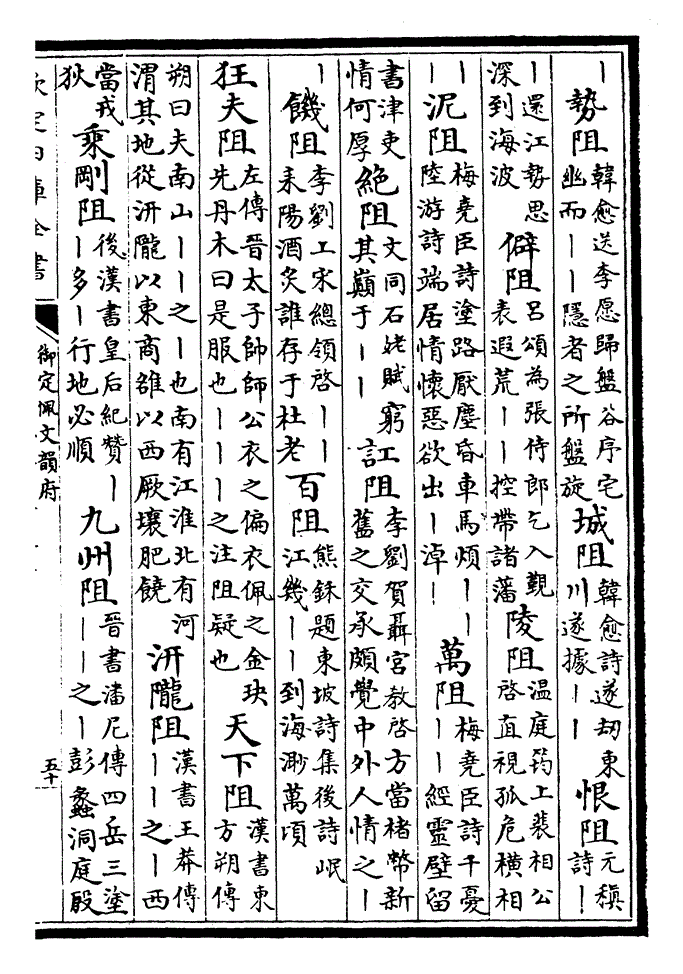 ｜勢阻韓愈送李愿歸盤谷序宅幽而｜｜隱者之所盤旋城阻韓愈詩遂刼東川遂據｜｜恨阻元稹詩｜
｜還江勢思深到海波僻阻呂頌為張侍郎乞入覲表遐荒｜｜控帶諸藩陵阻温庭筠上裴相公啓直視孤危横相
｜｜泥阻梅堯臣詩塗路厭塵昏車馬煩｜｜陸游詩端居情懷惡欲出｜淖｜萬阻梅堯臣詩千憂｜｜經靈壁留
書津吏情何厚絶阻文同石姥賦窮其巔于｜｜訌阻李劉賀聶宫教啓方當楮幣新舊之交承頗覺中外人情之｜
｜饑阻李劉工宋總領啓｜｜耒陽酒炙誰存于杜老百阻熊鉌題東坡詩集後詩岷江幾｜｜到海渺萬頃
狂夫阻左傳晉太子帥師公衣之偏衣佩之金玦先丹木曰是服也｜｜｜之注阻疑也天下阻漢書東方朔傳
朔曰夫南山｜｜之｜也南有江淮北有河渭其地從汧隴以東商雒以西厥壤肥饒汧隴阻漢書王莽傳｜｜之｜西
當戎狄乘剛阻後漢書皇后紀贊｜｜多｜行地必順九州阻晉書潘尼傳四岳三塗｜｜之｜彭蠡洞庭殷
欽定四庫全書
御定佩文韻府
五十